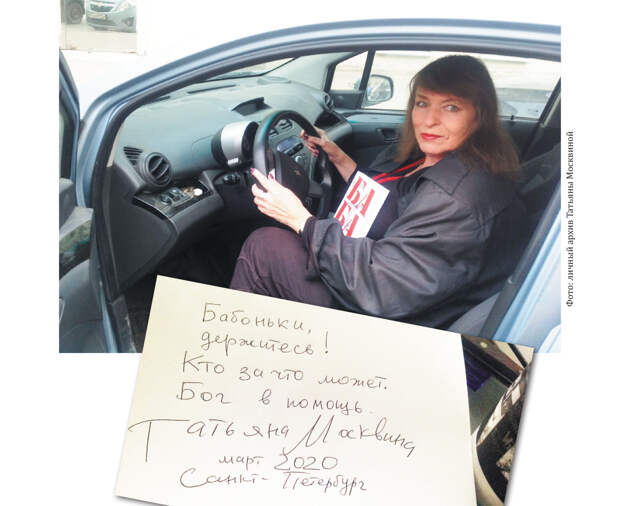 БА
БА
Фото: личный архив Татьяны Москвиной
Бабоньки,
держитесь!
Кто за что может.
Бог в помощь.
Татьяна Москвина
март 2020
Санкт-Петербург